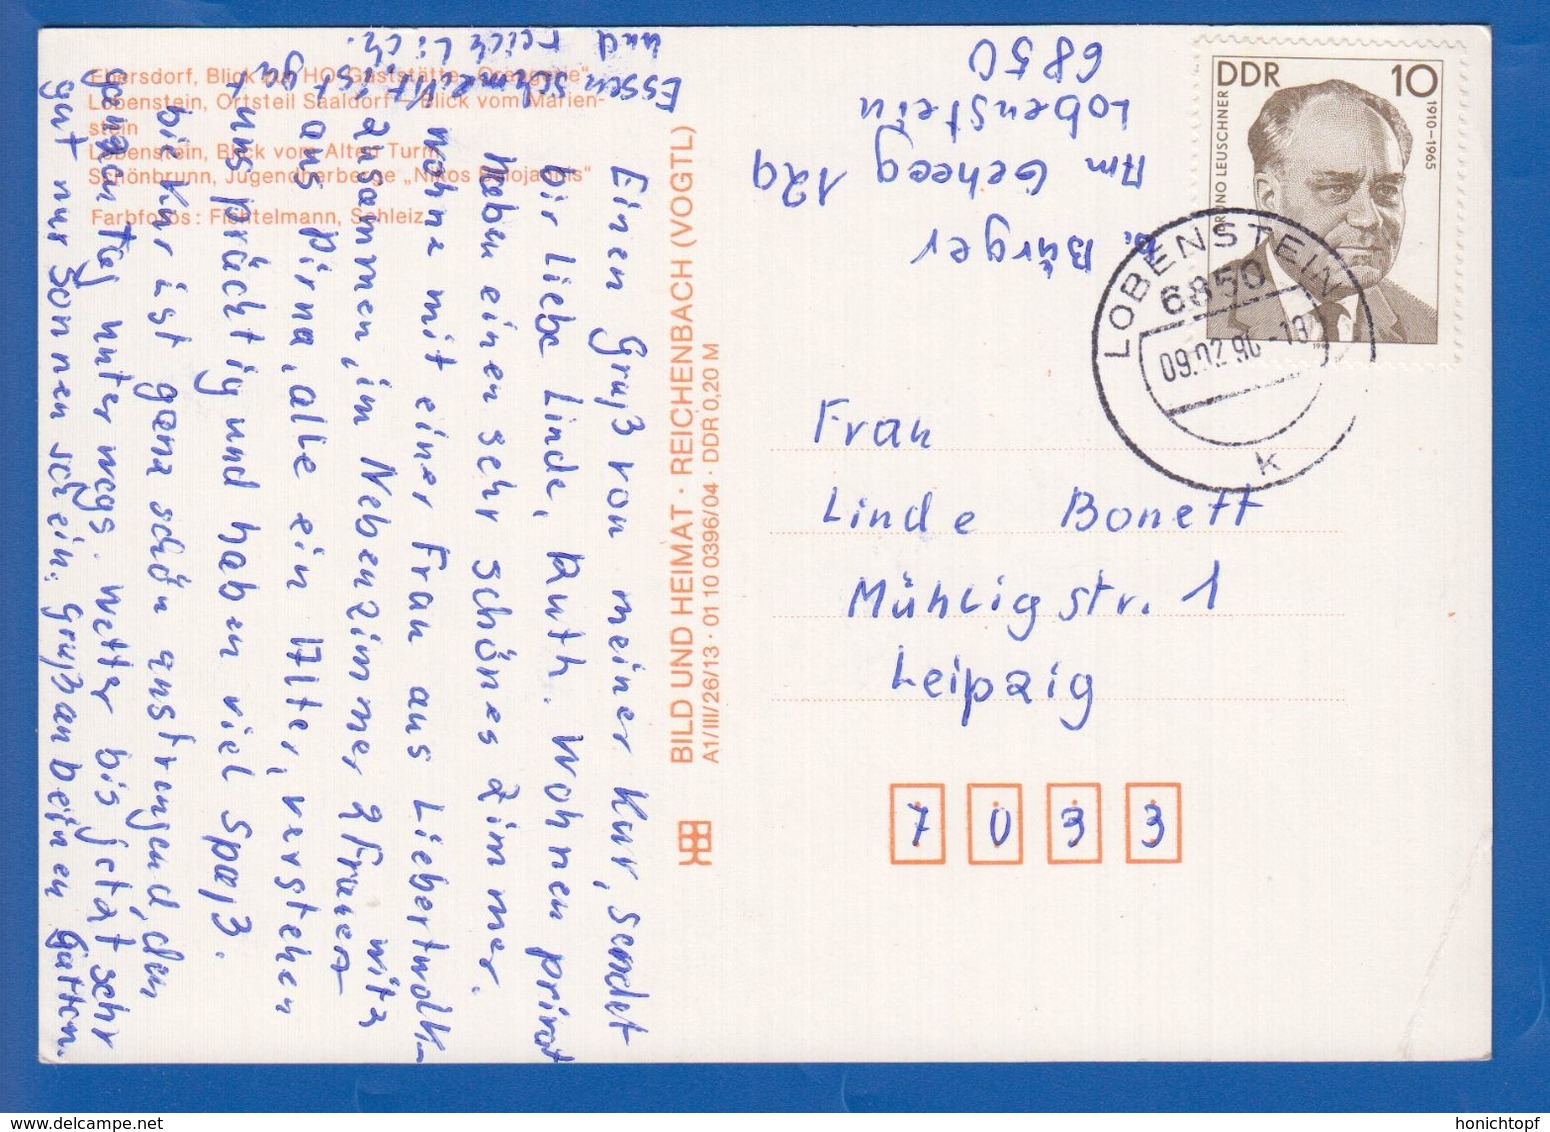 Ebersdorf, Blick zur HO-Gaststätte „Orangerie"
Lobenstein, Ortsteil Saaldorf – Blick vom Marien-
stein
Lobenstein, Blick vom Alten Turm
Schönbrunn, Jugendherberge „Nikos Belojannis"
Farbfotos: Fichtelmann, Schleiz
BILD UND HEIMAT · REICHENBACH (VOGTL)
A1/III/26/13 · 01 10 0396/04 · DDR 0,20 M
Einen Gruß von meiner Kur, sendet
Dir liebe Linde, Ruth. Wohnen privat
Haben einen sehr schönes Zimmer.
wohne mit einer Frau aus Liebertwolk-
zusammen, im Nebenzimmer 2 Frauen
aus Pirna, alle ein Alter, verstehen
uns prächtig und haben viel Spaß.
Die Kur ist ganz schön anstrengend, den
ganzen Tag unterwegs. Wetter bis jetzt sehr
gut nur Sonnenschein. Gruß an deinen Gatten.
Essen schmeckt ist gut
und reichlich.
Bürger
Am Geheeg 12a
Lobenstein
6850
DDR 10
BRUNO LEUSCHNER
1910–1965
LOBENSTEIN
6850
09.02.90-18
k
Frau
Linde Bonett
Mühligstr. 1
Leipzig
7 0 3 3
honichtopf